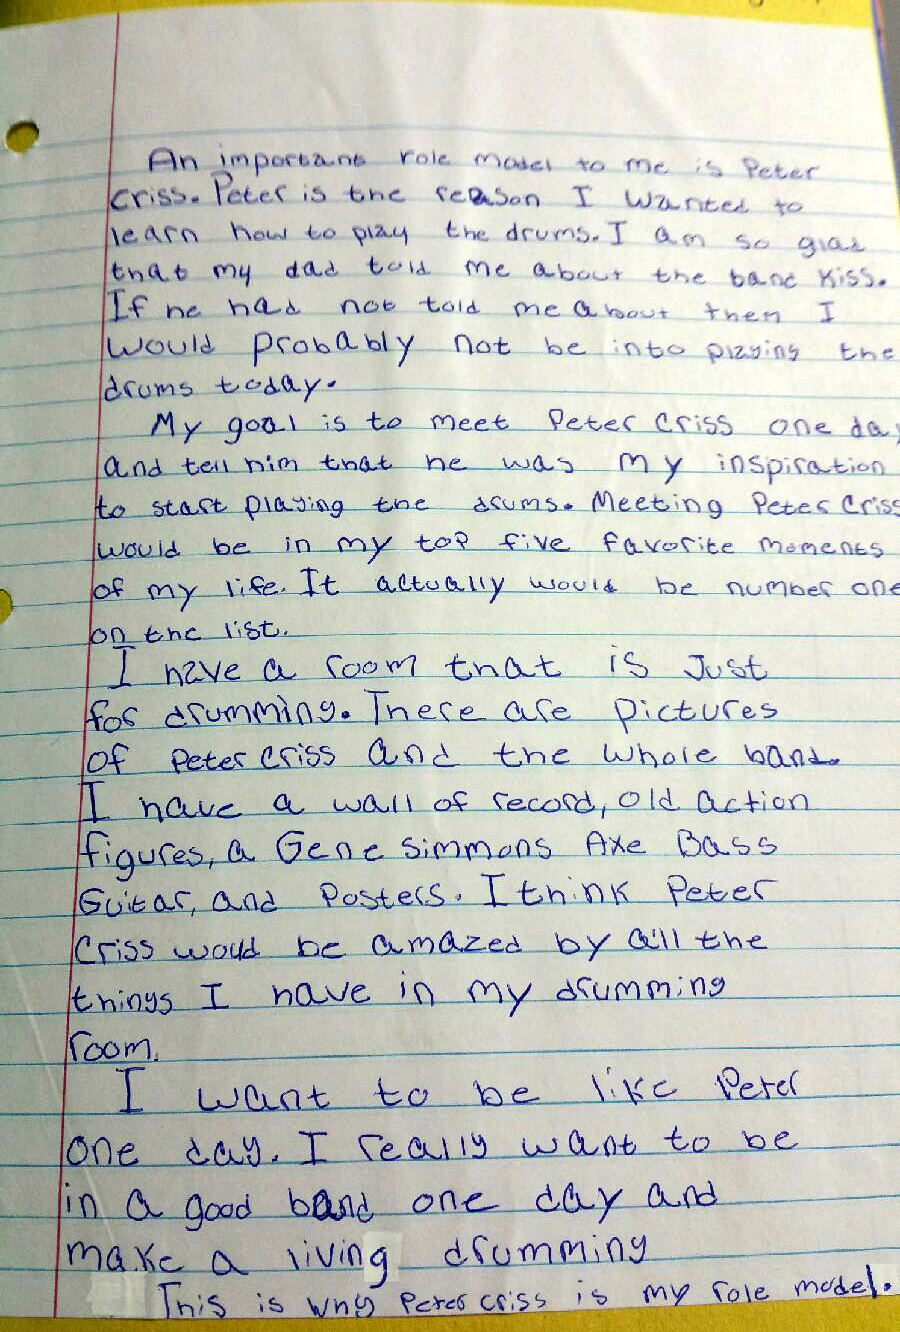 An important role model to me is Peter
Criss. Peter is the reason I wanted to
learn how to play the drums. I am so glad
that my dad told me about the band Kiss.
If he had not told me about them I
would probably not be into playing the
drums today.
My goal is to meet Peter Criss one day
and tell him that he was my inspiration
to start playing the drums. Meeting Peter Criss
would be in my top five favorite moments
of my life. It actually would be number one
on the list.
I have a room that is Just
for drumming. There are pictures
of Peter Criss and the whole band.
I have a wall of record, old action
figures, a Gene Simmons Axe Bass
Guitar, and Posters. I think Peter
Criss would be amazed by all the
things I have in my drumming
room.
I want to be like Peter
one day. I really want to be
in a good band one day and
make a living drumming
This is why Peter Criss is my role model.